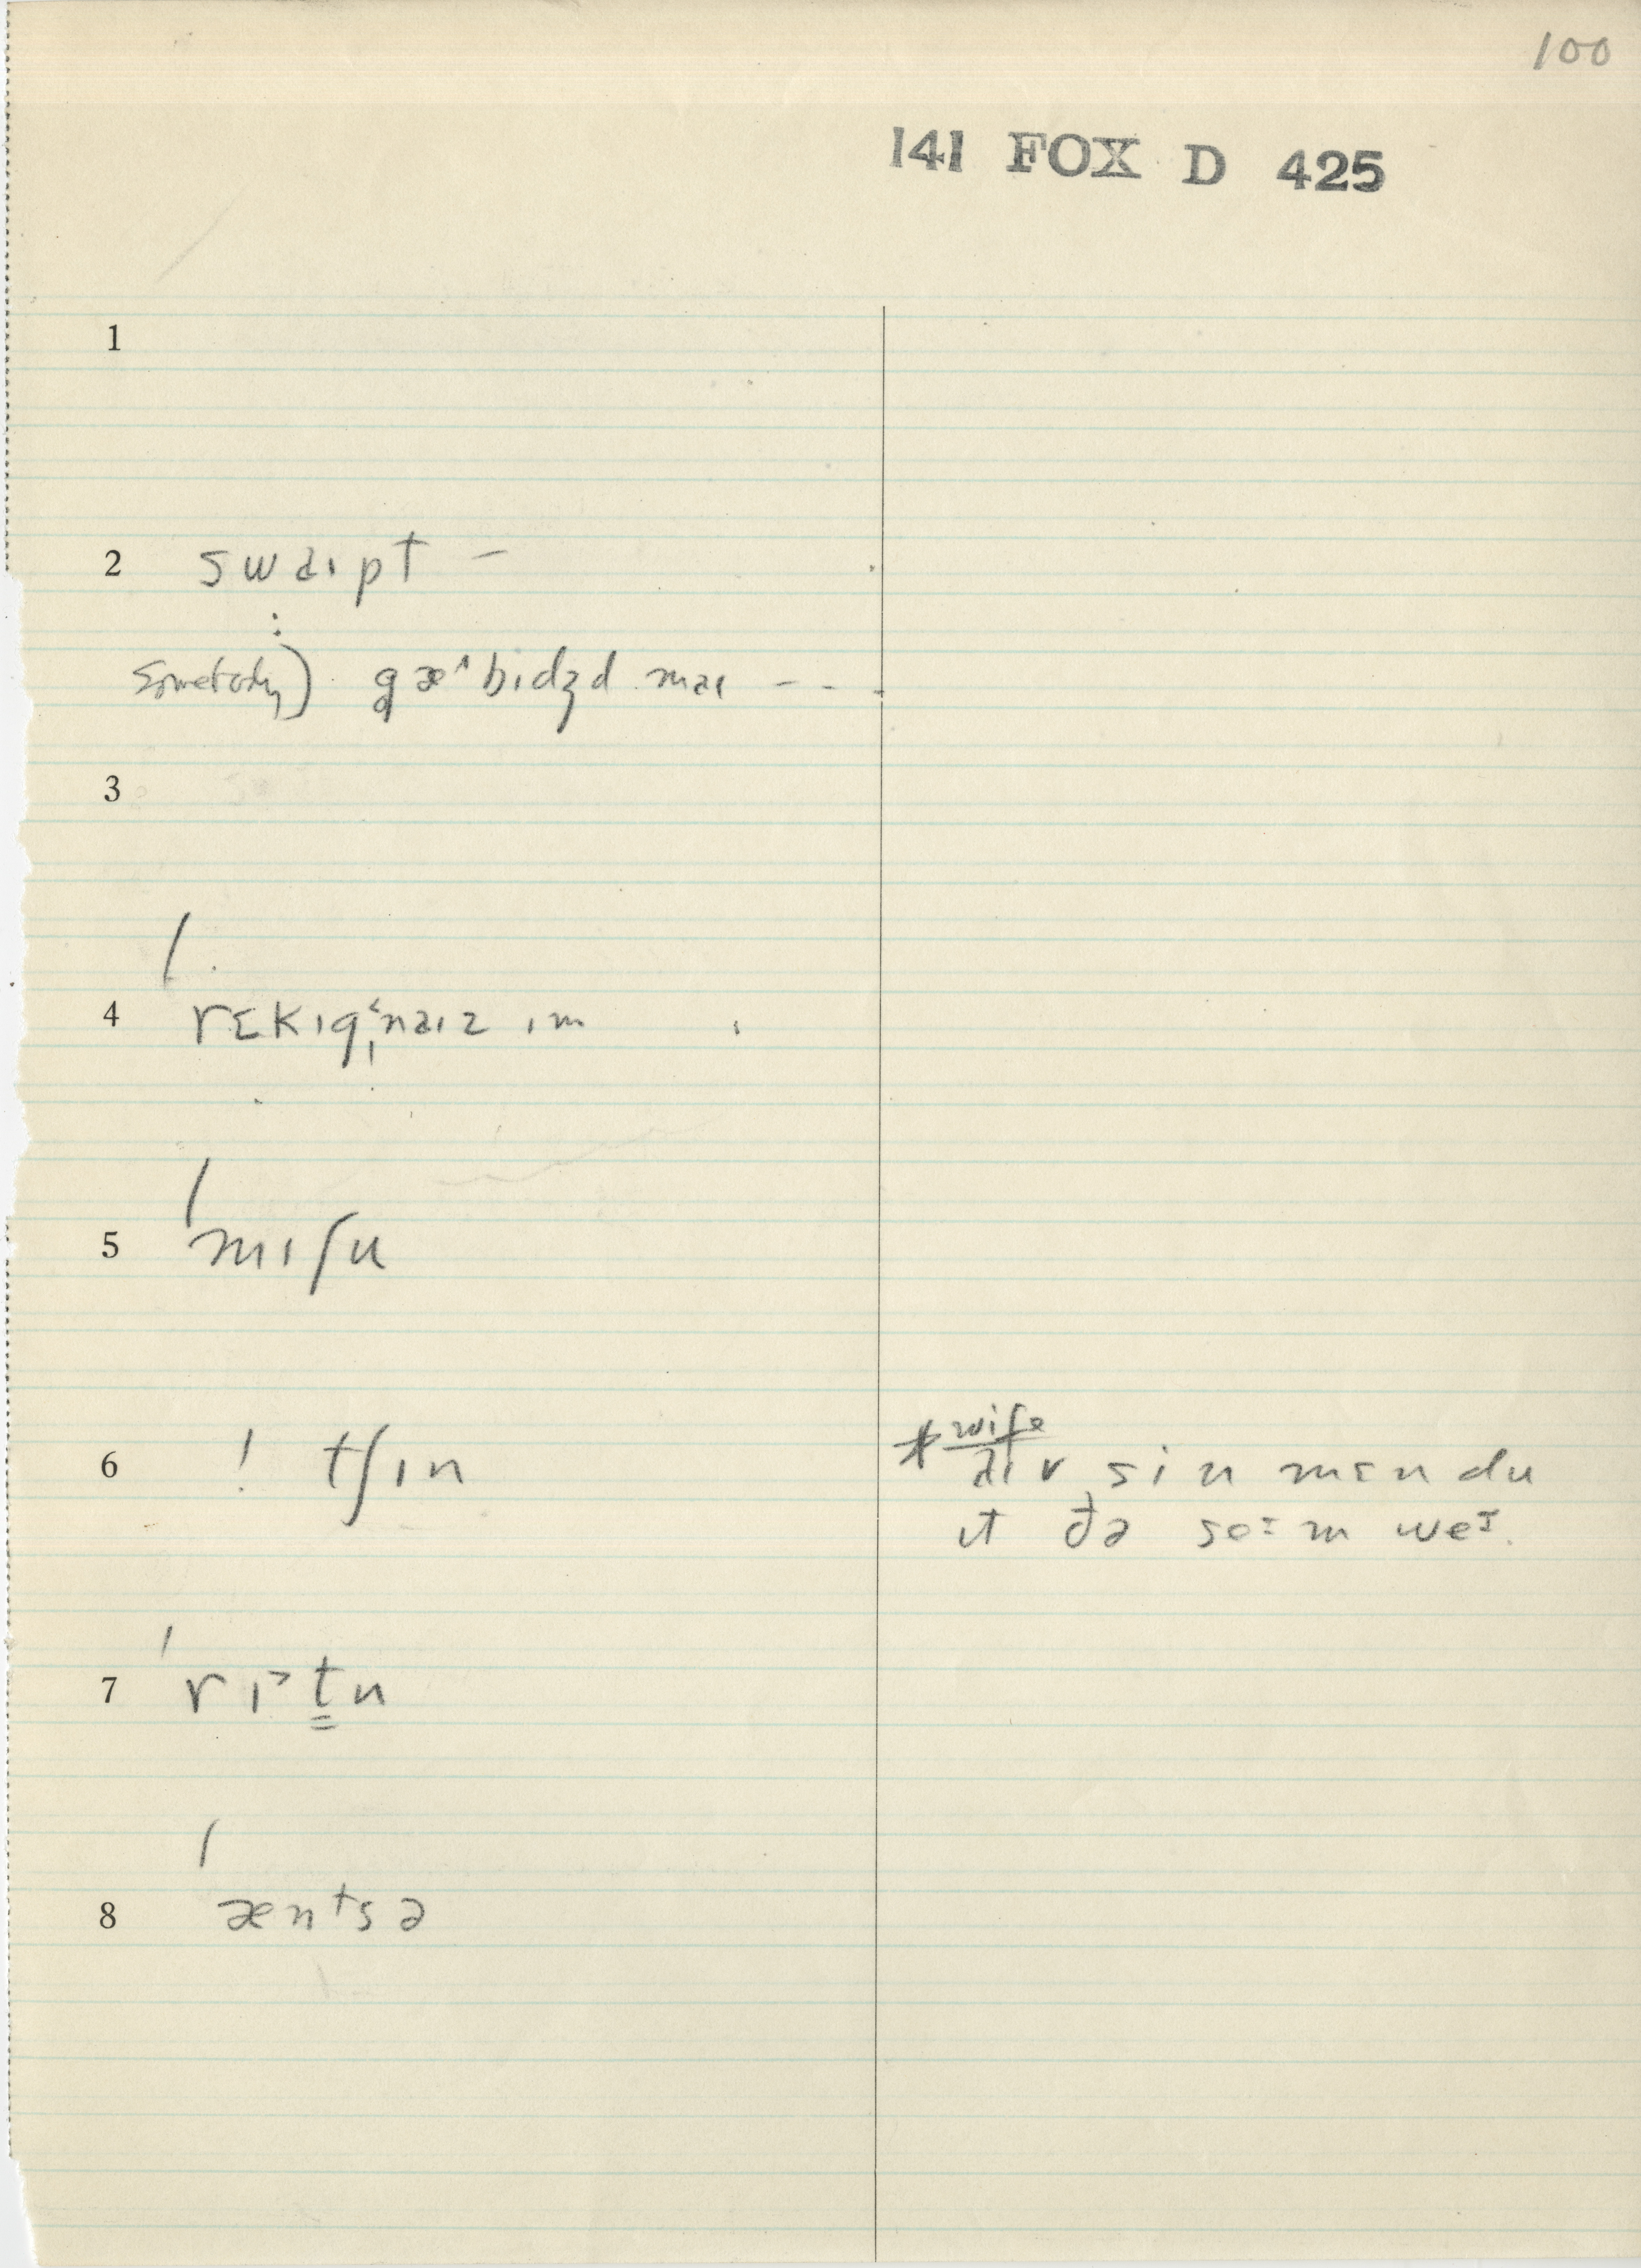 100
141 FOX D 425
1
2 swaɪpt –
:
somebody) gæˆbɪdʒd maɪ - - -
3
/
4 rɛkɪg̩ᵋnaɪz ɪm
/
5 mɪʃu
6 ! tʃɪn
* wife
aɪv sin mɛn du
ɪt ðə seɪm weɪ.
/
7 rɪ˃t̳n
/
8 æntsə